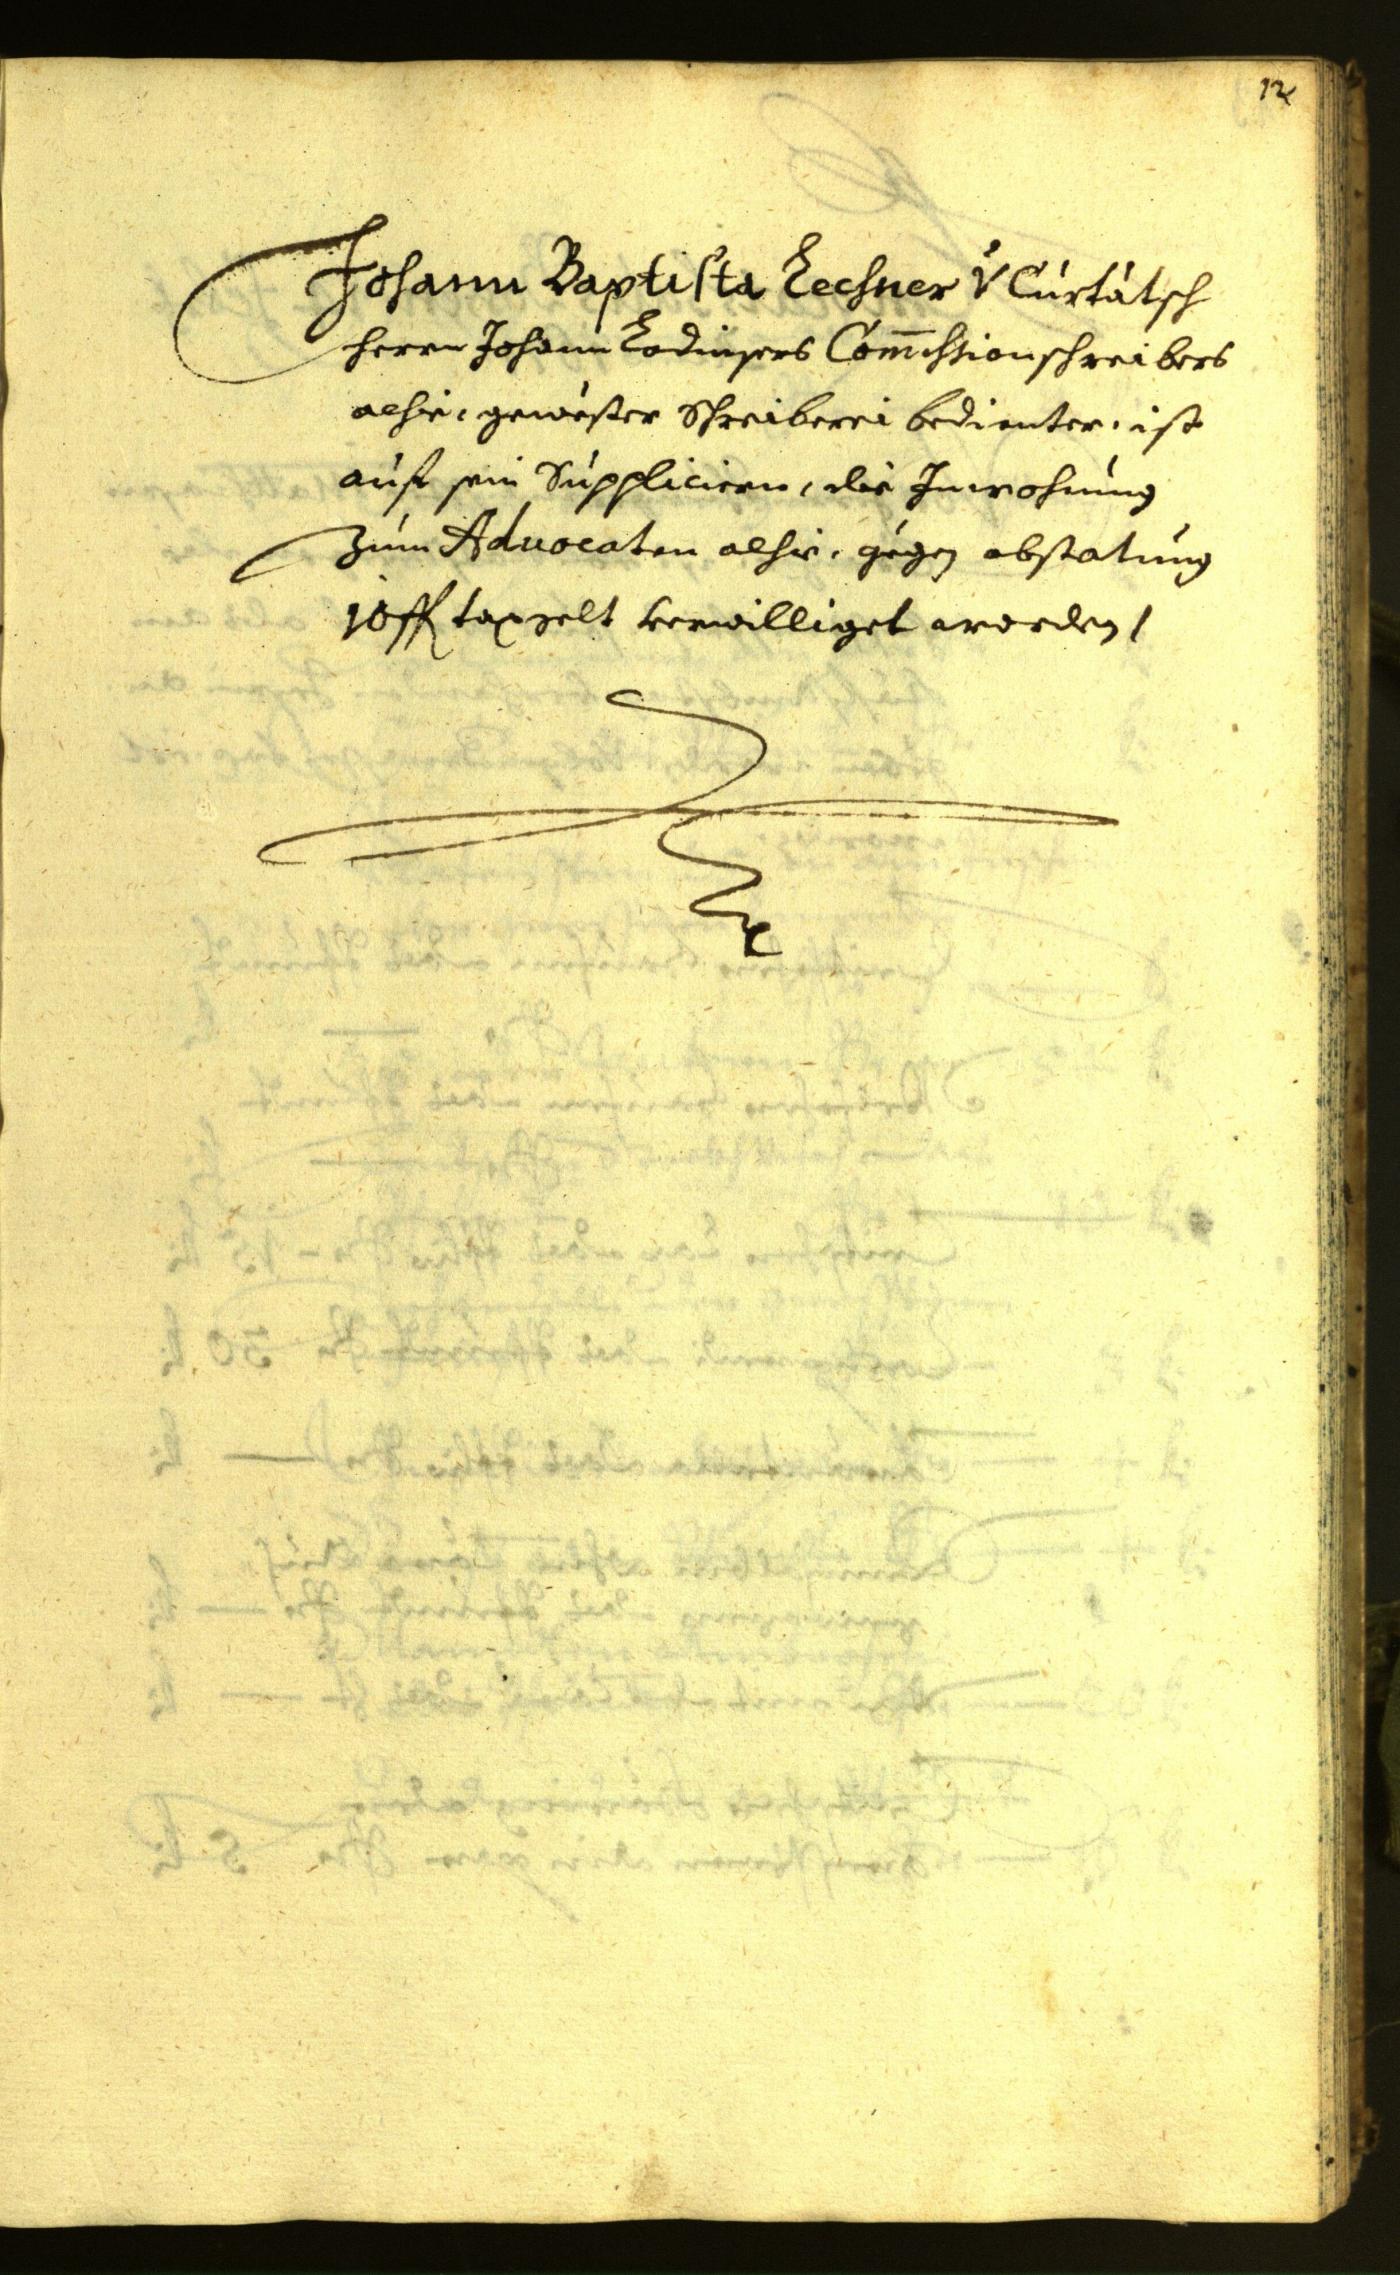 12
Johann Baptista Lechner v Curtatsch
herrn Johann Ladinsers Com̅issionschreibers
alhie, gewester Schreiberei bedienter, ist
auf sein Supplicieren, die Inwohnung
zum Advocaten alhie, gegen abstatung
10 ff taxgelt verwilliget worden /